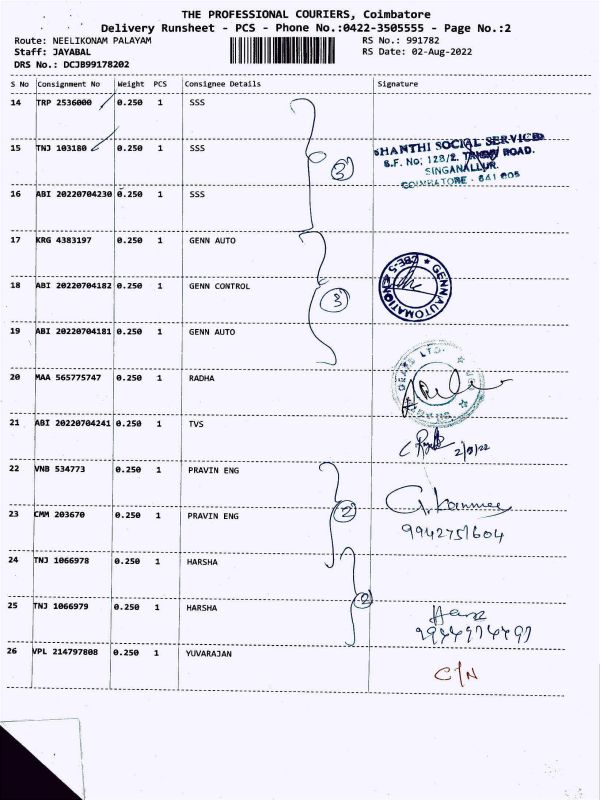 THE PROFESSIONAL COURIERS, Coimbatore
Delivery Runsheet - PCS - Phone No.:0422-3505555 - Page No.:2
Route: NEELIKONAM PALAYAM RS No.: 991782
Staff: JAYABAL RS Date: 02-Aug-2022
DRS No.: DCJB99178202
S No Consignment No Weight PCS Consignee Details Signature
14 TRP 2536000 0.250 1 SSS
15 TNJ 103180 0.250 1 SSS
3
SHANTHI SOCIAL SERVICE
S.F. No; 128/2, ROAD.
SINGANALLUR.
COIMBATORE - 641 005
16 ABI 20220704230 0.250 1 SSS
17 KRG 4383197 0.250 1 GENN AUTO
18 ABI 20220704182 0.250 1 GENN CONTROL
3
GENN AUTOMATION CBE-5
19 ABI 20220704181 0.250 1 GENN AUTO
20 MAA 565775747 0.250 1 RADHA
LTD.
21 ABI 20220704241 0.250 1 TVS
22 VNB 534773 0.250 1 PRAVIN ENG
23 CMM 203670 0.250 1 PRAVIN ENG
2
9942751604
24 TNJ 1066978 0.250 1 HARSHA
25 TNJ 1066979 0.250 1 HARSHA
2
26 VPL 214797808 0.250 1 YUVARAJAN
C/N